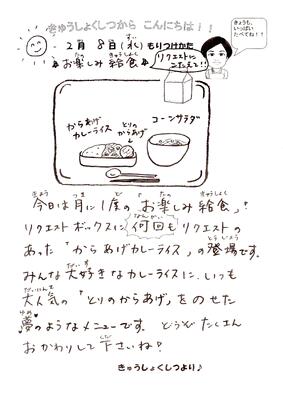 きゅうしょくしつから こんにちは！！
きょうも、
いっぱい
たべてね！！
2月 8日(水) もりつけかた
お楽しみ給食
リクエストに
こたえて!!
からあげ
カレーライス
とりの
からあげ
コーンサラダ
今日は月に1度の「お楽しみ給食」!
リクエストボックスに何回もリクエストの
あった「からあげカレーライス」の登場です。
みんな大好きなカレーライスに、いつも
大人気の「とりのからあげ」をのせた
夢のようなメニューです。どうぞたくさん
おかわりして下さいね?
きゅうしょくしつより♪